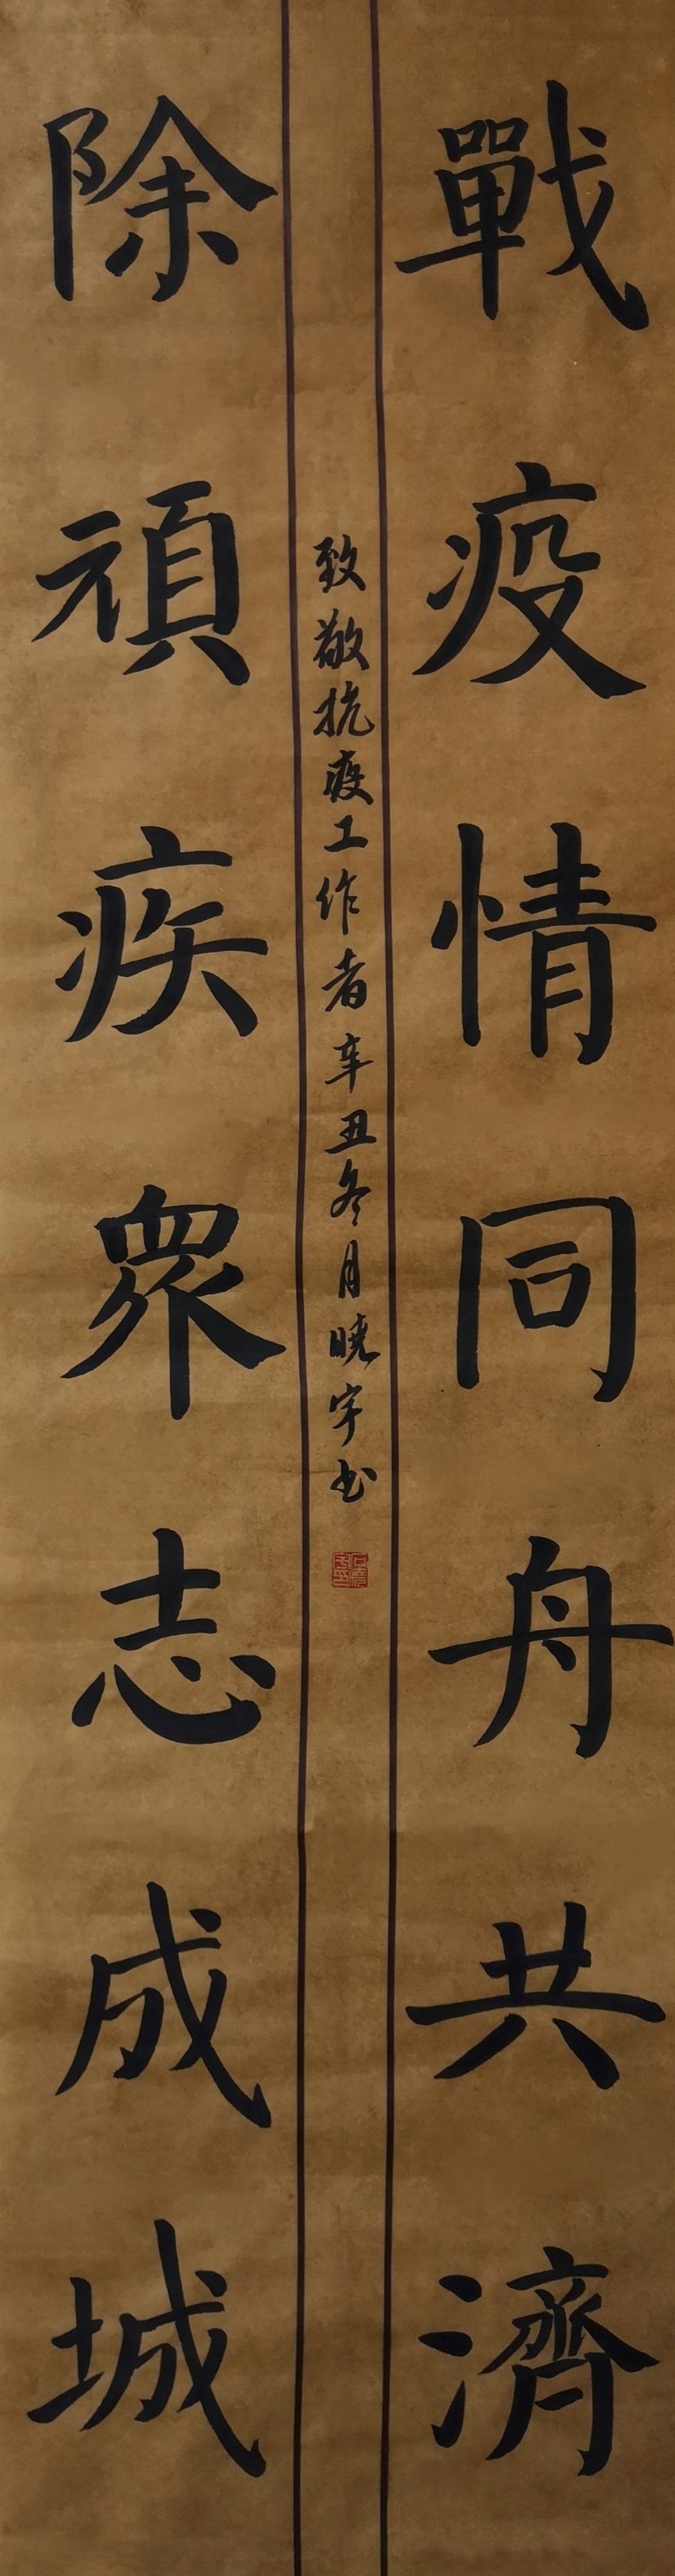 戰疫情同舟共濟
除頑疾衆志成城
致敬抗疫工作者辛丑冬月曉宇书